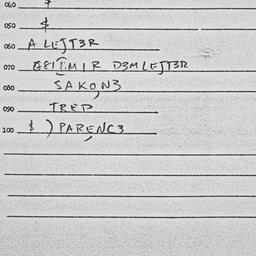 040
050 $
060 A LEJT3R
070 GEITMIR D3MLEJT3R
080 SAKON3
090 TRED
100 $ ) PARENC3